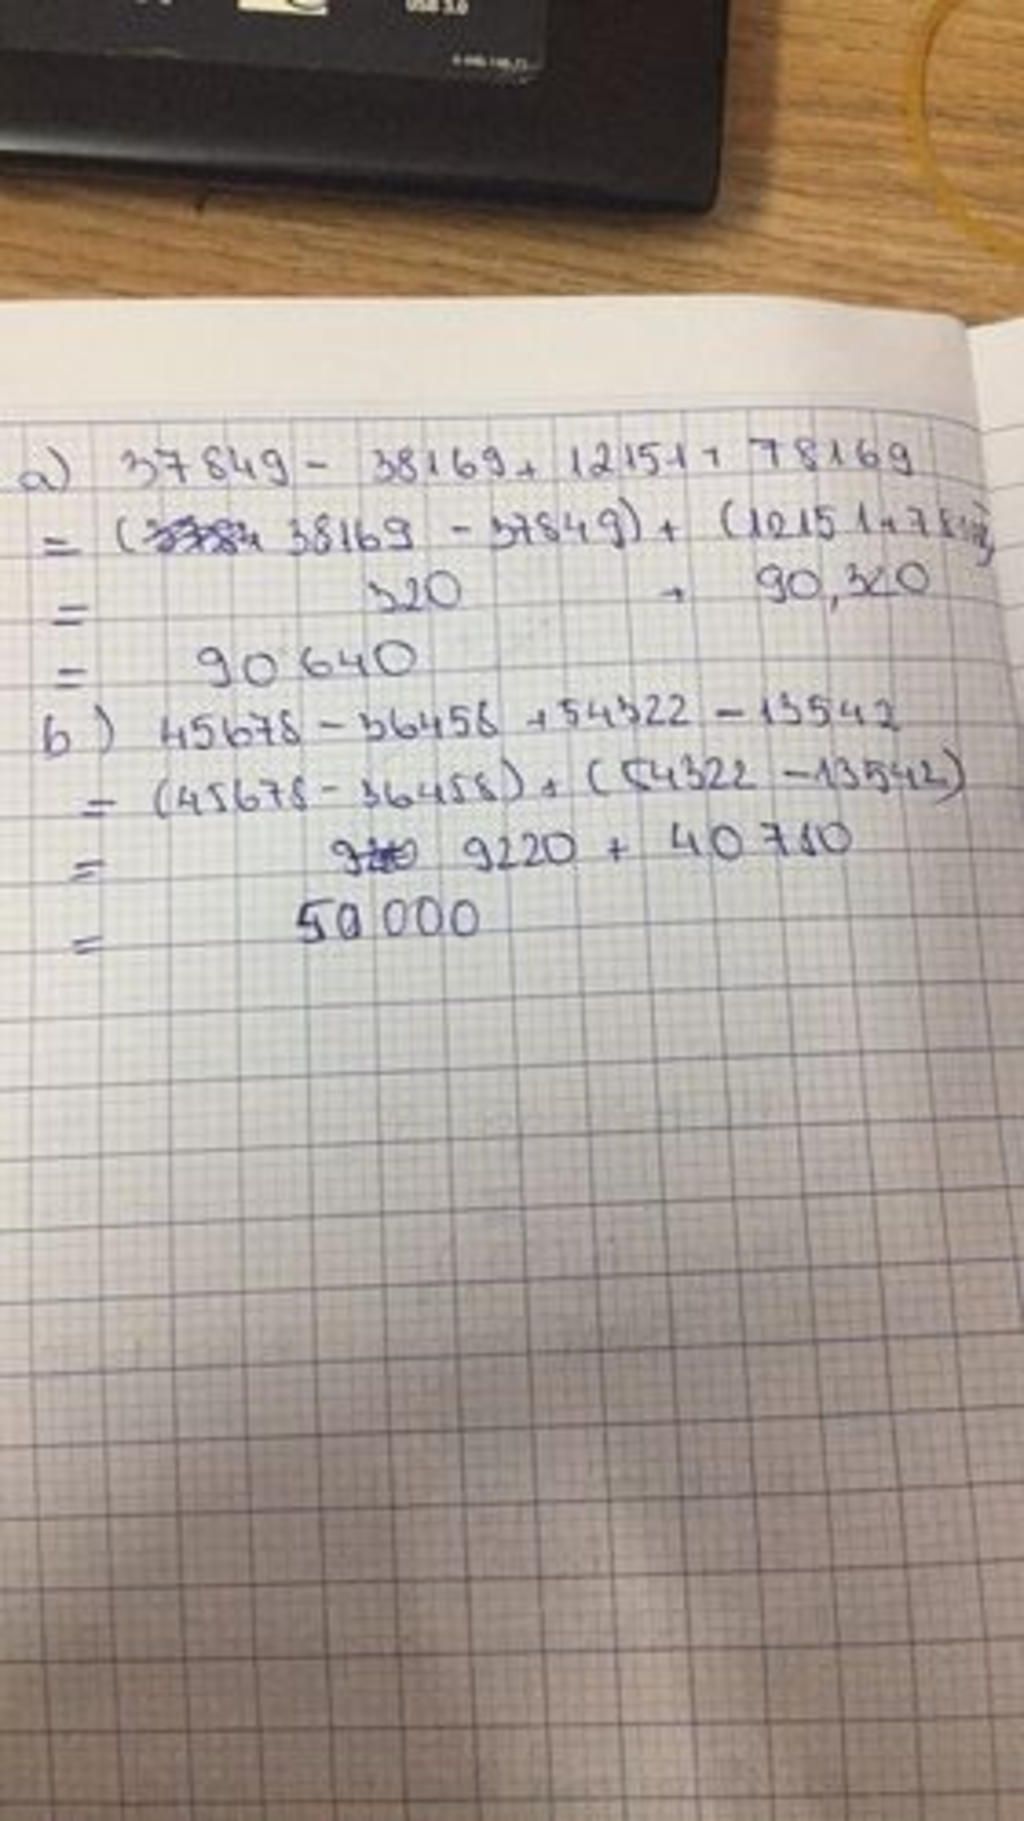 USB 3.0
a) 37849 - 38169 + 12151 + 78169
= ( 38169 - 37849) + (12151 +
= 320 + 90,320
= 90 640
b) 45678 - 36458 + 54322 - 13542
= (45678 - 36458) + (54322 - 13542)
= 9220 + 40780
= 50 000